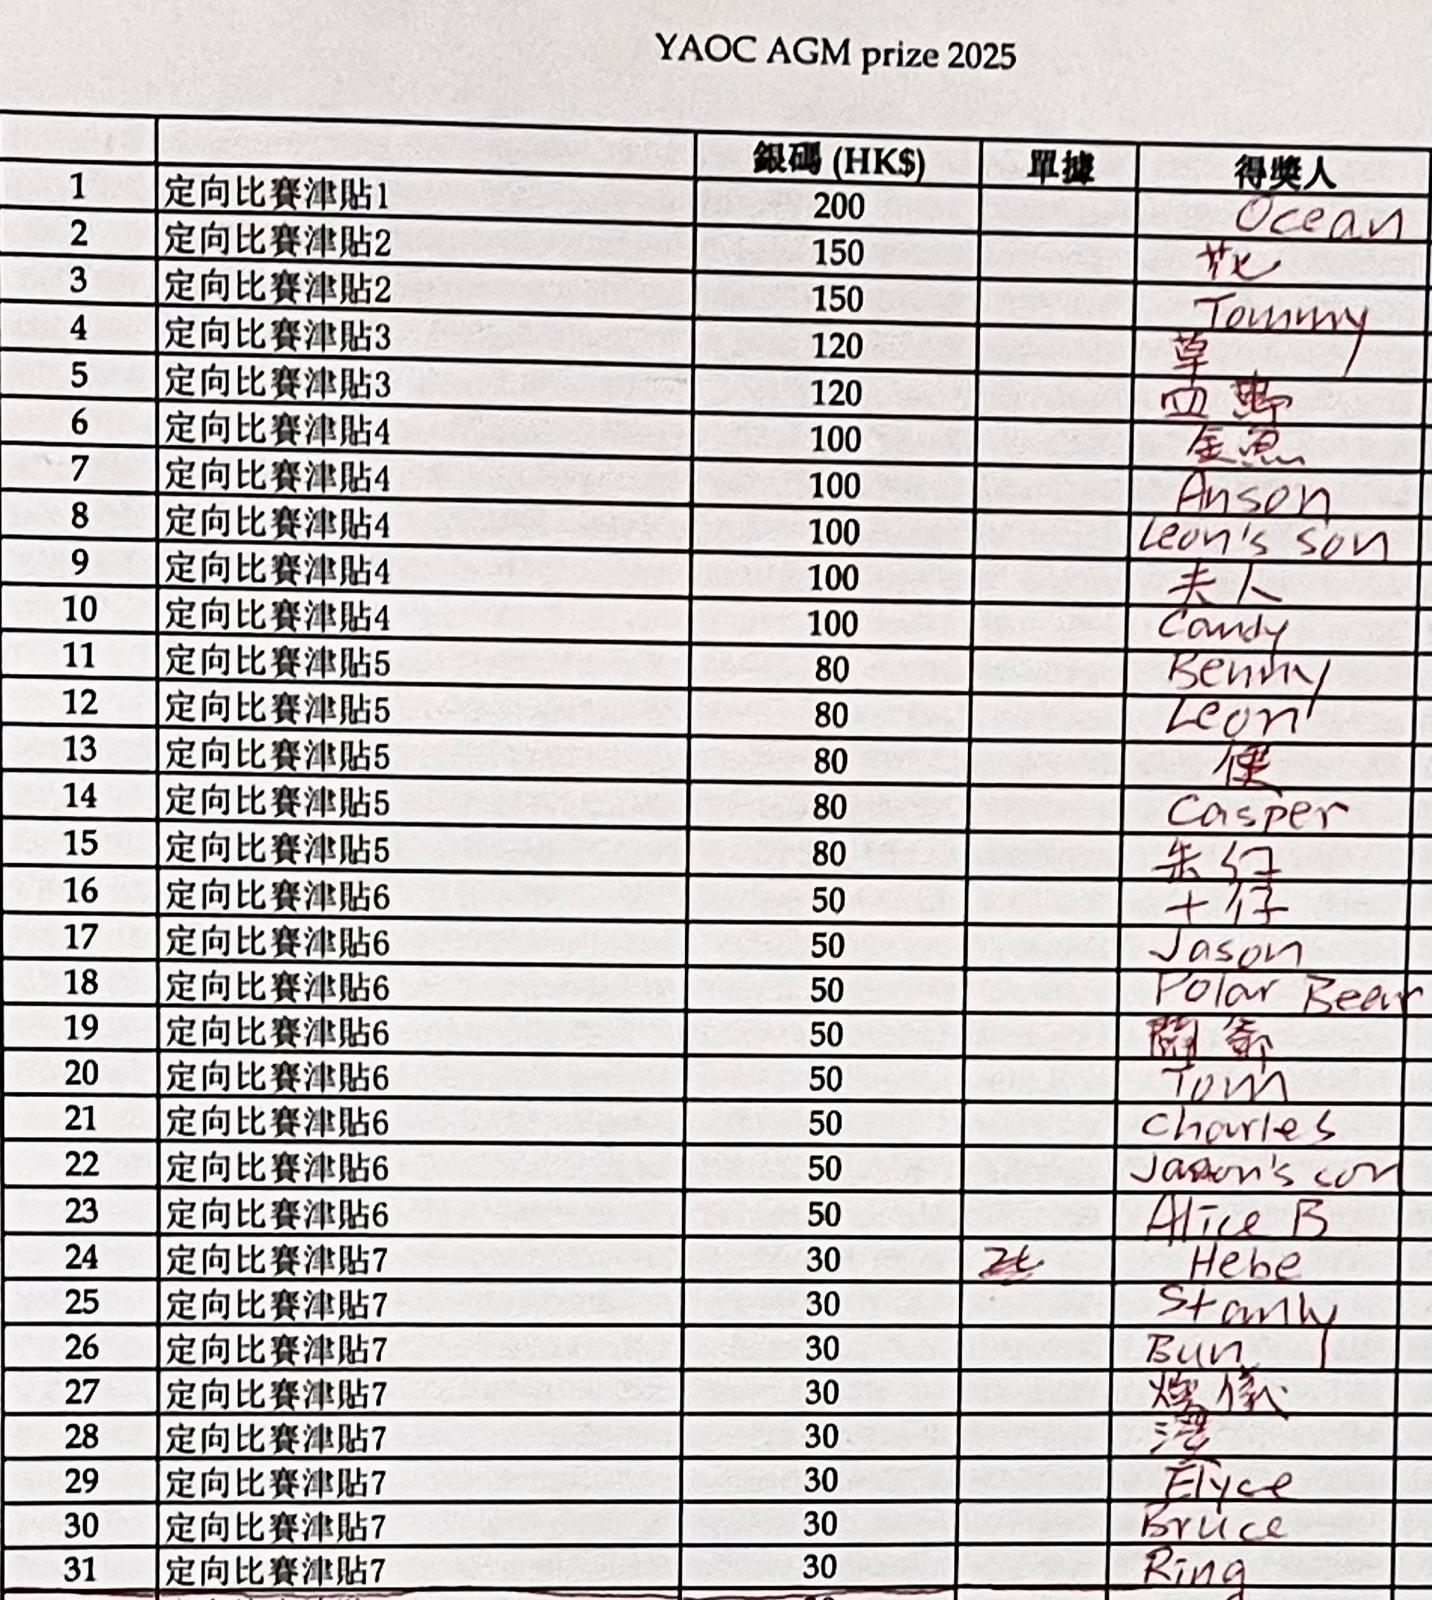 YAOC AGM prize 2025
銀碼 (HK$) 單據 得獎人
1 定向比賽津貼1 200 Ocean
2 定向比賽津貼2 150 花
3 定向比賽津貼2 150 Tommy
4 定向比賽津貼3 120 草
5 定向比賽津貼3 120
6 定向比賽津貼4 100 金魚
7 定向比賽津貼4 100 Anson
8 定向比賽津貼4 100 Leon's son
9 定向比賽津貼4 100 夫人
10 定向比賽津貼4 100 Candy
11 定向比賽津貼5 80 Benny
12 定向比賽津貼5 80 Leon
13 定向比賽津貼5 80
14 定向比賽津貼5 80 Casper
15 定向比賽津貼5 80
16 定向比賽津貼6 50 十仔
17 定向比賽津貼6 50 Jason
18 定向比賽津貼6 50 Polar Bear
19 定向比賽津貼6 50
20 定向比賽津貼6 50 Tom
21 定向比賽津貼6 50 Charles
22 定向比賽津貼6 50 Jason's son
23 定向比賽津貼6 50 Alice B
24 定向比賽津貼7 30 Hebe
25 定向比賽津貼7 30 Stanly
26 定向比賽津貼7 30 Bun
27 定向比賽津貼7 30
28 定向比賽津貼7 30 灣
29 定向比賽津貼7 30 Elyce
30 定向比賽津貼7 30 Bruce
31 定向比賽津貼7 30 Ring